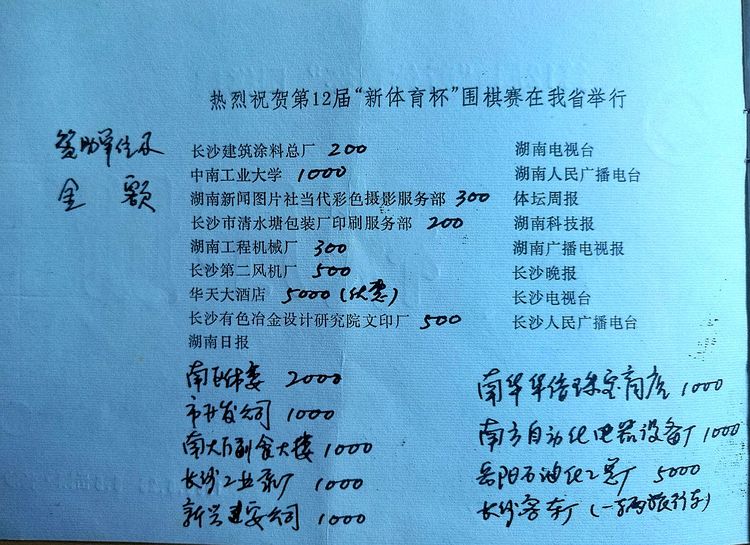 热烈祝贺第12届“新体育杯”围棋赛在我省举行
赞助单位及
金 额
长沙建筑涂料总厂 200
中南工业大学 1000
湖南新闻图片社当代彩色摄影服务部 300
长沙市清水塘包装厂印刷服务部 200
湖南工程机械厂 300
长沙第二风机厂 500
华天大酒店 5000 (优惠)
长沙有色冶金设计研究院文印厂 500
湖南日报
湖南电视台
湖南人民广播电台
体坛周报
湖南科技报
湖南广播电视报
长沙晚报
长沙电视台
长沙人民广播电台
2000
市开发公司 1000
南大门副食大楼 1000
长沙工业泵厂 1000
新兴建安公司 1000
南华华侨珠宝商店 1000
南方自动化电器设备厂 1000
岳阳石油化工总厂 5000
长沙客车厂 (一辆旅行车)